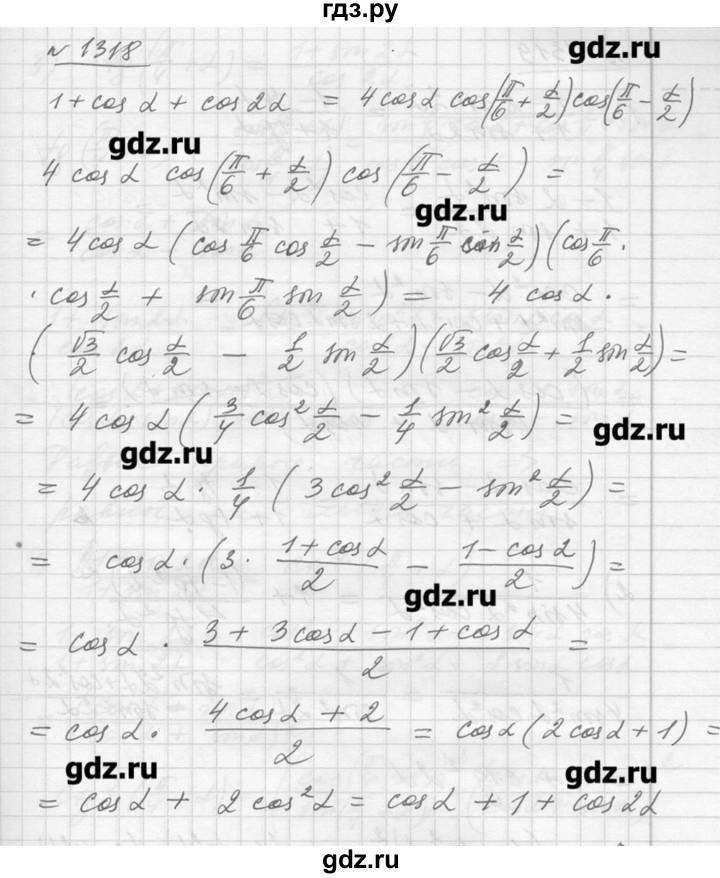 гдз.ру
№ 1318
gdz.ru
1 + cos α + cos 2α = 4 cos α cos(π/6 + α/2) cos(π/6 − α/2)
gdz.ru
4 cos α cos(π/6 + α/2) cos(π/6 − α/2) =
gdz.ru
= 4 cos α (cos π/6 cos α/2 − sin π/6 sin α/2)(cos π/6 ·
· cos α/2 + sin π/6 sin α/2) = 4 cos α ·
(√3/2 cos α/2 − 1/2 sin α/2)(√3/2 cos α/2 + 1/2 sin α/2) =
= 4 cos α (3/4 cos² α/2 − 1/4 sin² α/2) =
gdz.ru
gdz.ru
= 4 cos α · 1/4 (3 cos² α/2 − sin² α/2) =
= cos α · (3 · (1 + cos α)/2 − (1 − cos α)/2) =
gdz.ru
= cos α · (3 + 3 cos α − 1 + cos α)/2 =
= cos α · (4 cos α + 2)/2 = cos α (2 cos α + 1) =
gdz.ru
gdz.ru
= cos α + 2 cos² α = cos α + 1 + cos 2α
gdz.ru